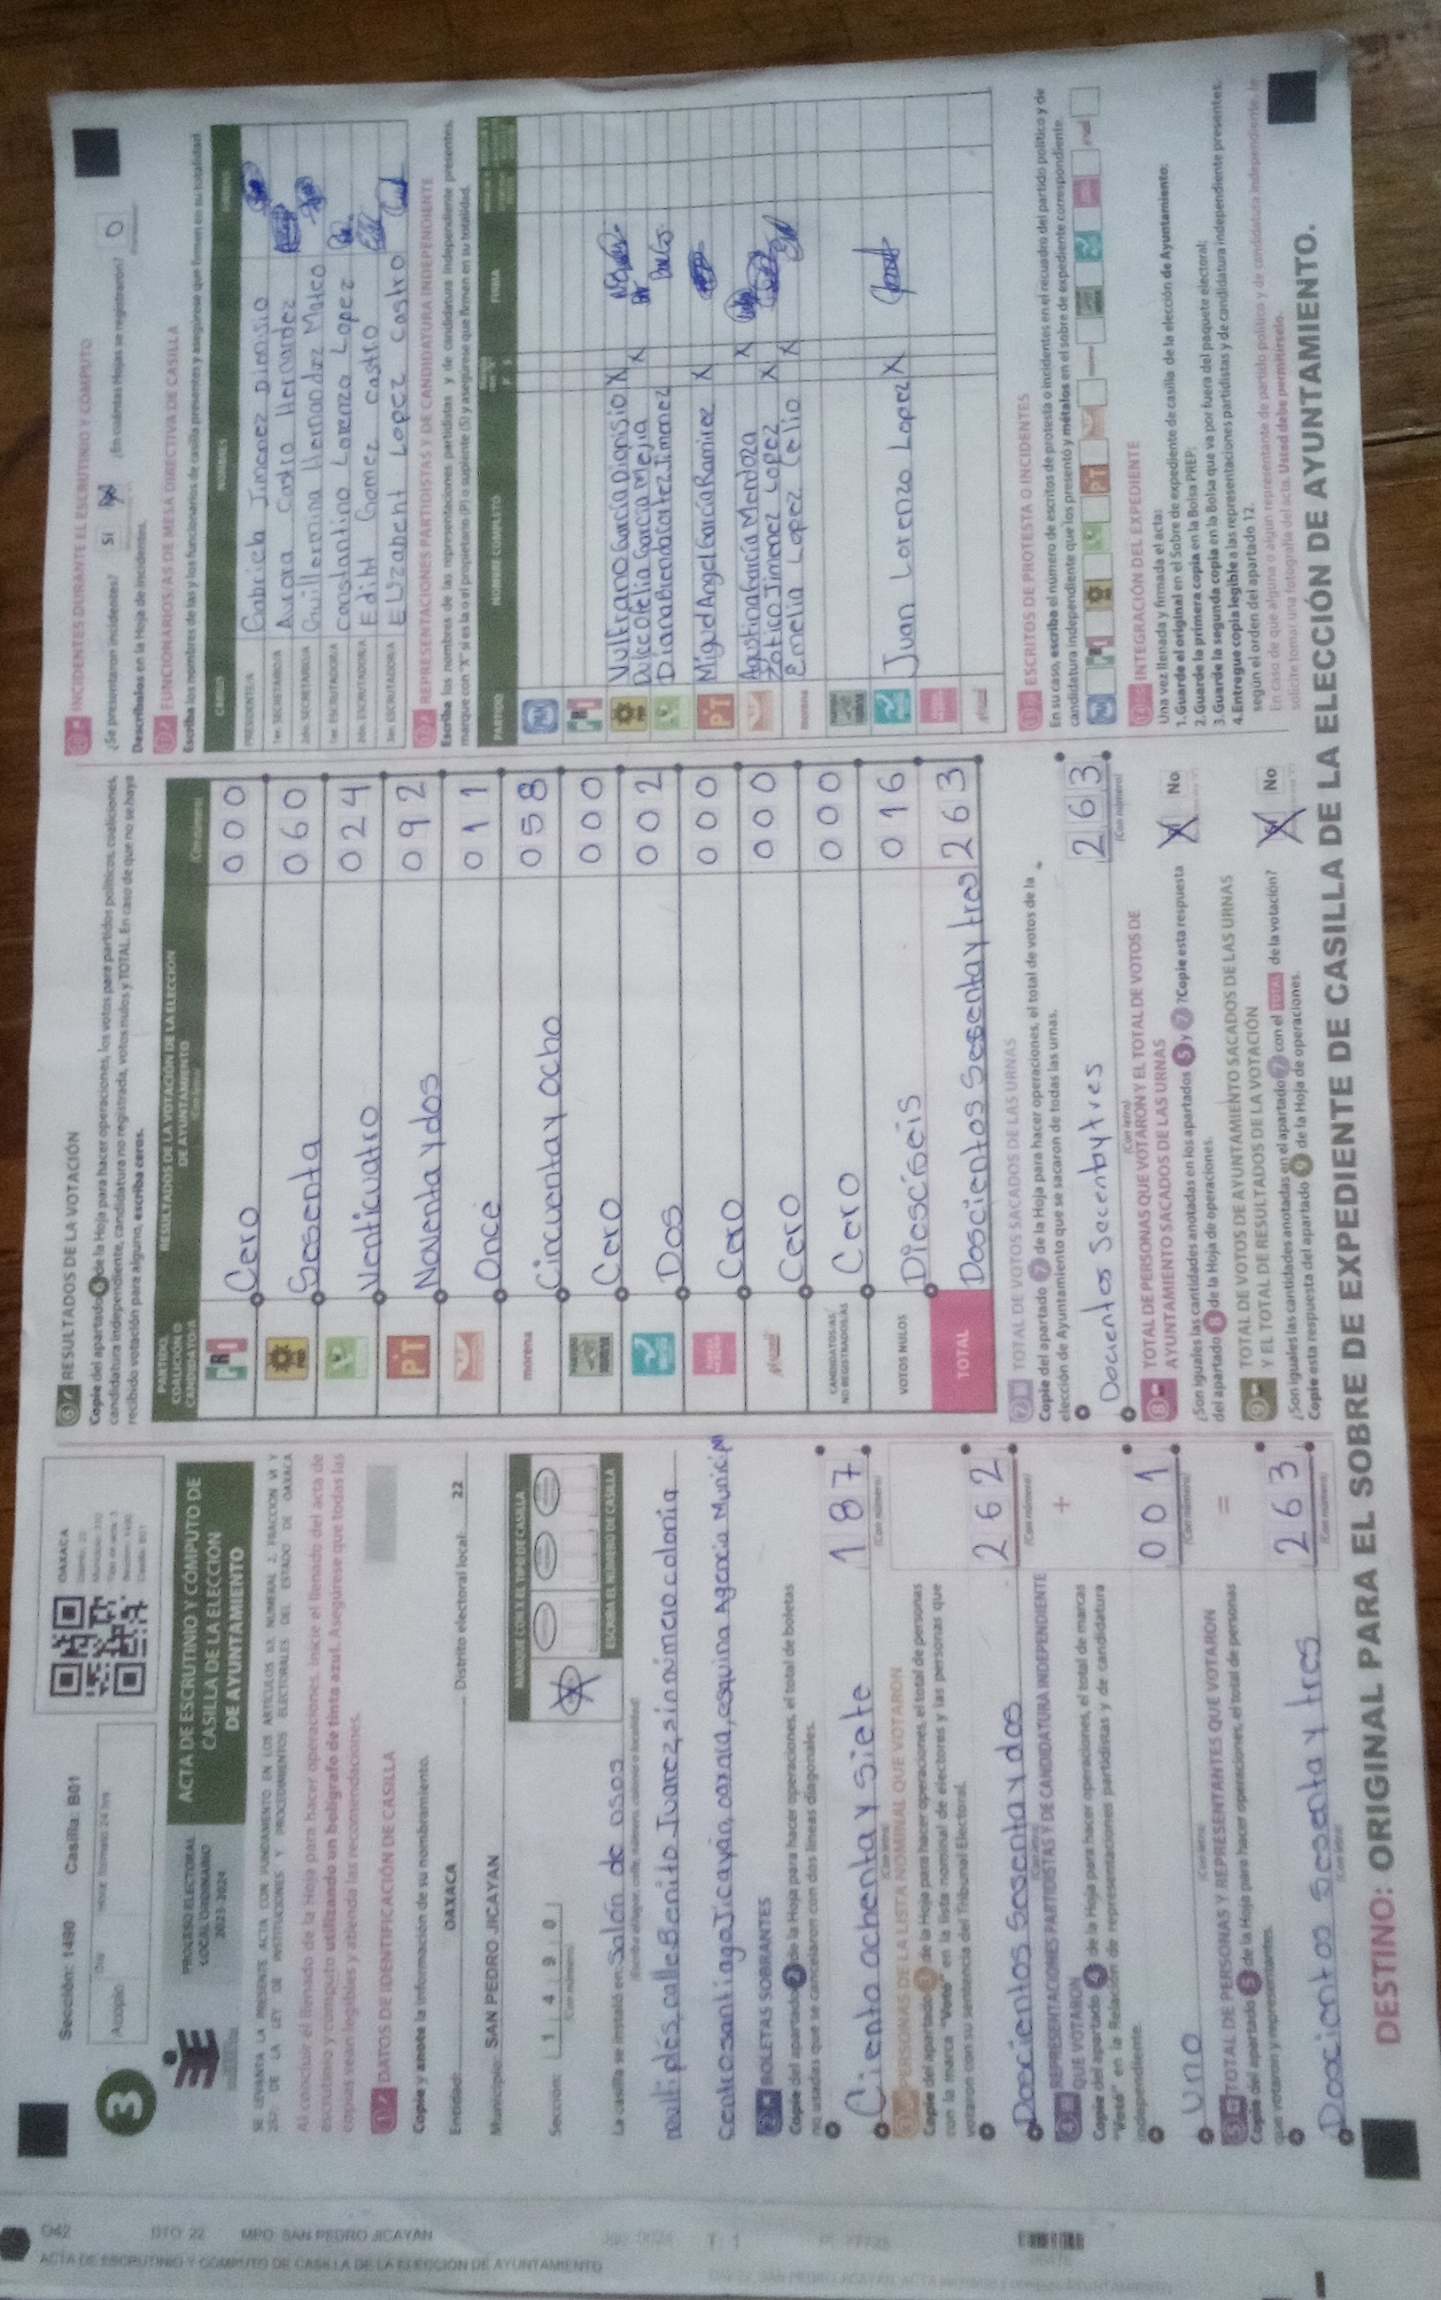 042
DTO: 22
MPO: SAN PEDRO JICAYAN
ACTA DE ESCRUTINIO Y CÓMPUTO DE CASILLA DE LA ELECCIÓN DE AYUNTAMIENTO
3
Sección: 1490
Casilla: B01
OAXACA
Acopio
PROCESO ELECTORAL
LOCAL ORDINARIO
2023-2024
ACTA DE ESCRUTINIO Y CÓMPUTO DE
CASILLA DE LA ELECCIÓN
DE AYUNTAMIENTO
Al concluir el llenado de la Hoja para hacer operaciones, inicie el llenado del acta de
escrutinio y cómputo utilizando un bolígrafo de tinta azul. Asegúrese que todas las
copias sean legibles y atienda las recomendaciones.
1 DATOS DE IDENTIFICACIÓN DE CASILLA
Copie y anote la información de su nombramiento.
Entidad: OAXACA Distrito electoral local: 22
Municipio: SAN PEDRO JICAYAN
Sección: 1 4 9 0
(Con número)
MARQUE CON X EL TIPO DE CASILLA
ESCRIBA EL NÚMERO DE CASILLA
La casilla se instaló en: Salón de osos
multiples, calle Benito Juarez, sin número colonia
centro santiago Jicayán, oaxaca, esquina Agencia Municipal
2 BOLETAS SOBRANTES
Copie del apartado 2 de la Hoja para hacer operaciones, el total de boletas
no usadas que se cancelaron con dos líneas diagonales.
Ciento ochenta y siete 187
(Con número)
3 PERSONAS DE LA LISTA NOMINAL QUE VOTARON
Copie del apartado 3 de la Hoja para hacer operaciones, el total de personas
con la marca "Votó" en la lista nominal de electores y las personas que
votaron con su sentencia del Tribunal Electoral.
Doscientos sesenta y dos 262
(Con número)
+
4 REPRESENTACIONES PARTIDISTAS Y DE CANDIDATURA INDEPENDIENTE
QUE VOTARON
Copie del apartado 4 de la Hoja para hacer operaciones, el total de marcas
"Votó" en la Relación de representaciones partidistas y de candidatura
independiente.
Uno 001
(Con número)
=
5 TOTAL DE PERSONAS Y REPRESENTANTES QUE VOTARON
Copie del apartado 5 de la Hoja para hacer operaciones, el total de personas
que votaron y representantes.
Doscientos sesenta y tres 263
(Con número)
6 RESULTADOS DE LA VOTACIÓN
Copie del apartado 6 de la Hoja para hacer operaciones, los votos para partidos políticos, coaliciones,
candidatura independiente, candidatura no registrada, votos nulos y TOTAL. En caso de que no se haya
recibido votación para alguno, escriba ceros.
PARTIDO,
COALICIÓN O
CANDIDATO/A
RESULTADOS DE LA VOTACIÓN DE LA ELECCIÓN
DE AYUNTAMIENTO
PRI Cero 000
PRD Sesenta 060
Venticuatro 024
PT Noventa y dos 092
Once 011
morena Cincuenta y ocho 058
Cero 000
Dos 002
Cero 000
Cero 000
CANDIDATOS/AS
NO REGISTRADOS/AS Cero 000
VOTOS NULOS Dieciseis 016
TOTAL Doscientos sesenta y tres 263
7 TOTAL DE VOTOS SACADOS DE LAS URNAS
Copie del apartado 7 de la Hoja para hacer operaciones, el total de votos de la
elección de Ayuntamiento que se sacaron de todas las urnas.
Docientos Secentbytres 263
(Con letra)
(Con número)
8 TOTAL DE PERSONAS QUE VOTARON Y EL TOTAL DE VOTOS DE
AYUNTAMIENTO SACADOS DE LAS URNAS
¿Son iguales las cantidades anotadas en los apartados 5 y 7? Copie esta respuesta
del apartado 8 de la Hoja de operaciones.
X No
9 TOTAL DE VOTOS DE AYUNTAMIENTO SACADOS DE LAS URNAS
Y EL TOTAL DE RESULTADOS DE LA VOTACIÓN
¿Son iguales las cantidades anotadas en el apartado 7 con el TOTAL de la votación?
Copie esta respuesta del apartado 9 de la Hoja de operaciones.
X No
10 INCIDENTES DURANTE EL ESCRUTINIO Y CÓMPUTO
¿Se presentaron incidentes? Sí ¿En cuántas Hojas se registraron? 0
Descríbalos en la Hoja de incidentes.
11 FUNCIONARIOS/AS DE MESA DIRECTIVA DE CASILLA
Escriba los nombres de las y los funcionarios de casilla presentes y asegúrese que firmen en su totalidad.
CARGOS NOMBRES FIRMAS
PRESIDENTE/A Gabriela Jimenez Dionisio
1er. SECRETARIO/A Aurora Castro Hernandez
2do. SECRETARIO/A Guillermina Hernandez Mateo
1er. ESCRUTADOR/A Constantino Lorenzo Lopez
2do. ESCRUTADOR/A Ediht Gomez Castro
3er. ESCRUTADOR/A Elizabeht Lopez Castro
12 REPRESENTACIONES PARTIDISTAS Y DE CANDIDATURA INDEPENDIENTE
Escriba los nombres de las representaciones partidistas y de candidatura independiente presentes,
marque con "X" si es la o el propietario (P) o suplente (S) y asegúrese que firmen en su totalidad.
PARTIDO NOMBRE COMPLETO FIRMA
PAN
PRI
PRD Vulfrano García Dionisio X
Dulce Ofelia García Mejía
Diana Brenda Cortez Jimenez X
PT Miguel Angel García Ramirez X
Agustina García Mendoza X
Zotico Jimenez Lopez X
morena Emelia Lopez Celio X
Juan Lorenzo Lopez X
13 ESCRITOS DE PROTESTA O INCIDENTES
En su caso, escriba el número de escritos de protesta o incidentes en el recuadro del partido político y de
candidatura independiente que los presentó y métalos en el sobre de expediente correspondiente.
14 INTEGRACIÓN DEL EXPEDIENTE
Una vez llenada y firmada el acta:
1. Guarde el original en el Sobre de expediente de casilla de la elección de Ayuntamiento;
2. Guarde la primera copia en la Bolsa PREP;
3. Guarde la segunda copia en la Bolsa que va por fuera del paquete electoral;
4. Entregue copia legible a las representaciones partidistas y de candidatura independiente presentes,
según el orden del apartado 12.
En caso de que alguna o algún representante de partido político y de candidatura independiente, le
solicite tomar una fotografía del acta. Usted debe permitírselo.
DESTINO: ORIGINAL PARA EL SOBRE DE EXPEDIENTE DE CASILLA DE LA ELECCIÓN DE AYUNTAMIENTO.